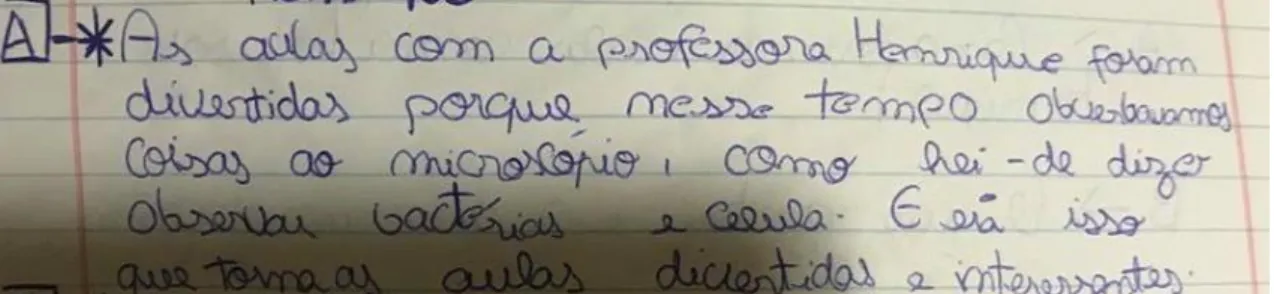 A -* As aulas com a professora Henrique foram
divertidas porque nesse tempo obcerbavamos
coisas ao microscópio, como hei-de dizer
observar bactérias e celula. E erá isso
que torna as aulas divertidas e interessantes.